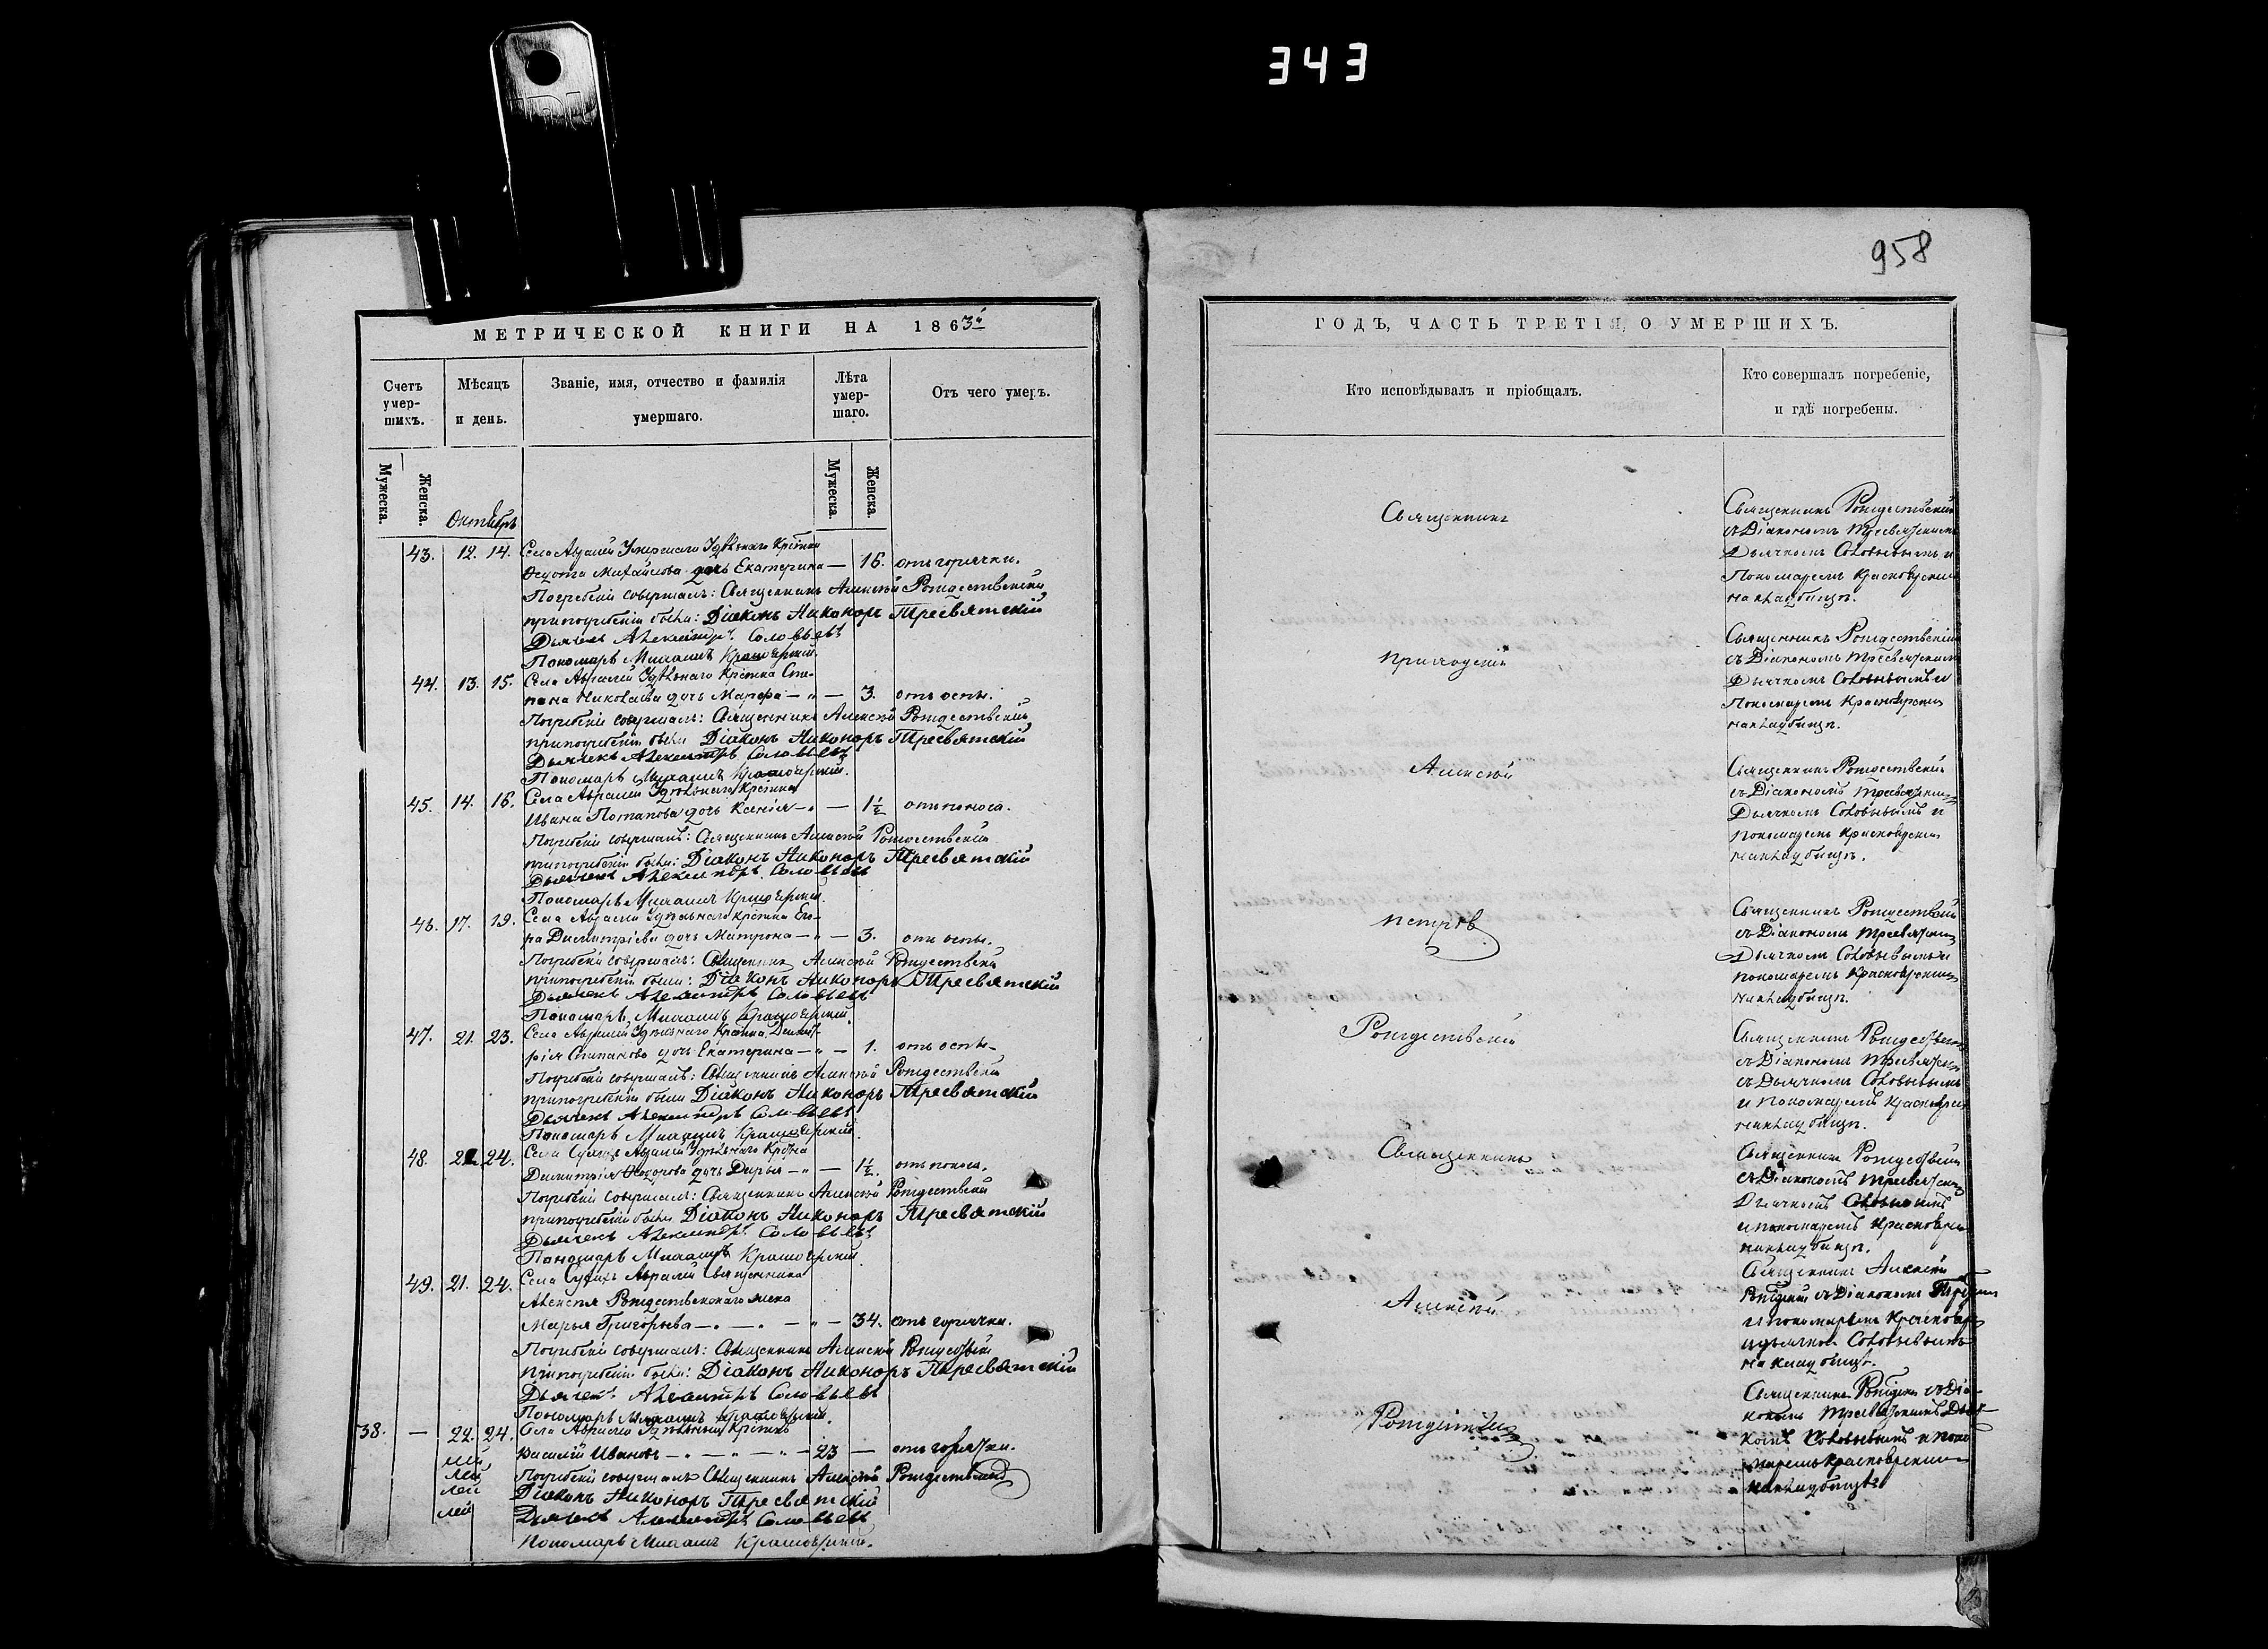 343
958
МЕТРИЧЕСКОЙ КНИГИ НА 1863й
Счетъ умер-шихъ.
Мѣсяцъ и день.
Званіе, имя, отчество и фамилія умершаго.
Лѣта умер-шаго.
Отъ чего умеръ.
Мужеска.
Женска.
Октябрь
Мужеска.
Женска.
43. 12. 14. Села Умершаго Удѣльнаго
Михайлова дочь Екатерина — 16. отъ горячки.
Погребеніе совершалъ: Священникъ Алексѣй Рождественскій
при погребеніи были: Діаконъ Никоноръ Тресвятскій
Дьячекъ Александръ Соловьевъ
Пономарь Михаилъ Красноярскій.
44. 13. 15. Села Удѣльнаго Сте-
пана Николаева дочь Марфа — " — 3. отъ оспы.
Погребеніе совершалъ: Священникъ Алексѣй Рождественскій
при погребеніи были Діаконъ Никоноръ Тресвятскій
Дьячекъ Александръ Соловьевъ
Пономарь Михаилъ Красноярскій.
45. 14. 16. Села Удѣльнаго
Ивана Потапова дочь Ксенія — " — 1½ отъ поноса.
Погребеніе совершалъ: Священникъ Алексѣй Рождественскій
при погребеніи были: Діаконъ Никоноръ Тресвятскій
Дьячекъ Александръ Соловьевъ
Пономарь Михаилъ Красноярскій.
46. 17. 19. Села Удѣльнаго Его-
ра Димитріева дочь Матрона — " — 3. отъ оспы.
Погребеніе совершалъ: Священникъ Алексѣй Рождественскій
при погребеніи были: Діаконъ Никоноръ Тресвятскій
Дьячекъ Александръ Соловьевъ
Пономарь Михаилъ Красноярскій.
47. 21. 23. Села Удѣльнаго Димит-
рія Степанова дочь Екатерина — " — 1. отъ оспы
Погребеніе совершалъ: Священникъ Алексѣй Рождественскій
при погребеніи были Діаконъ Никоноръ Тресвятскій
Дьячекъ Александръ Соловьевъ
Пономарь Михаилъ Красноярскій.
48. 22. 24. Села Удѣльнаго
Димитрія Ѳедорова дочь Дарья — " — 1½. отъ поноса.
Погребеніе совершалъ: Священникъ Алексѣй Рождественскій
при погребеніи были Діаконъ Никоноръ Тресвятскій
Дьячекъ Александръ Соловьевъ
Пономарь Михаилъ Красноярскій.
49. 21. 24. Села Священника
Алексѣя Рождественскаго жена
Марья Григорьева — " — " — " — 34. отъ горячки.
Погребеніе совершалъ: Священникъ Алексѣй Рождественскій
при погребеніи были: Діаконъ Никоноръ Тресвятскій
Дьячекъ Александръ Соловьевъ
Пономарь Михаилъ Красноярскій.
38. — 22. 24. Села Удѣльный
Василій Ивановъ — " — " — " — 23 — отъ горячки.
Погребеніе совершалъ Священникъ Алексѣй Рождественскій
Діаконъ Никоноръ Тресвятскій
Дьячекъ Александръ Соловьевъ
Пономарь Михаилъ Красноярскій.
ГОДЪ, ЧАСТЬ ТРЕТІЯ, О УМЕРШИХЪ.
Кто исповѣдывалъ и пріобщалъ.
Кто совершалъ погребеніе, и гдѣ погребены.
Священникъ
приходскій
Алексѣй
Петровъ
Рождественскій
Священникъ
Алексѣй
Священникъ Рождественскій
съ Діакономъ Тресвятскимъ
Дьячкомъ Соловьевымъ и
Пономаремъ Красноярскимъ
на кладбищѣ.
Священникъ Рождественскій
съ Діакономъ Тресвятскимъ
Дьячкомъ Соловьевымъ и
Пономаремъ Красноярскимъ
на кладбищѣ.
Священникъ Рождественскій
съ Діакономъ Тресвятскимъ
Дьячкомъ Соловьевымъ и
пономаремъ Красноярскимъ
на кладбищѣ.
Священникъ Рождественскій
съ Діакономъ Тресвятскимъ
Дьячкомъ Соловьевымъ и
пономаремъ Красноярскимъ
на кладбищѣ.
Священникъ Рождественскій
съ Діакономъ Тресвятскимъ
съ Дьячкомъ Соловьевымъ
и пономаремъ Красноярскимъ
на кладбищѣ.
Священникъ Рождественскій
съ Діакономъ Тресвятскимъ
Дьячкомъ Соловьевымъ
и пономаремъ Красноярскимъ
на кладбищѣ.
Священникъ Алексѣй
съ Діакономъ
и пономаремъ
и дьячкомъ Соловьевымъ
на кладбищѣ.
Священникъ съ Діа-
кономъ Тресвятскимъ Дьяч-
комъ Соловьевымъ и поно-
маремъ Красноярскимъ
на кладбищѣ